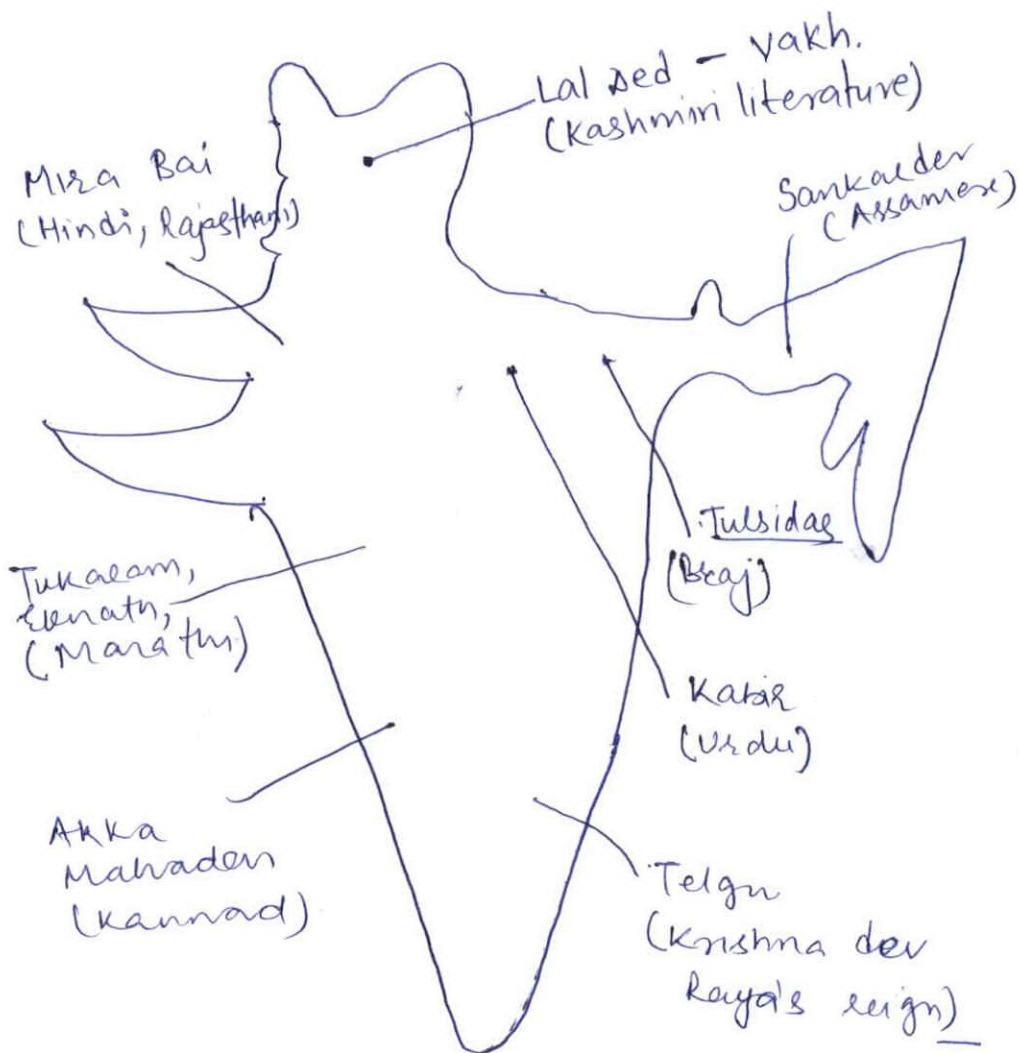 Lal Ded - Vakh.
(Kashmiri literature)
Mira Bai
(Hindi, Rajasthani)
Sankardev
(Assamese)
Tulsidas
(Braj)
Tukaram,
Eknath,
(Marathi)
Kabir
(Urdu)
Akka
Mahadevi
(Kannad)
Telgu
(Krishna dev
Raya's reign)